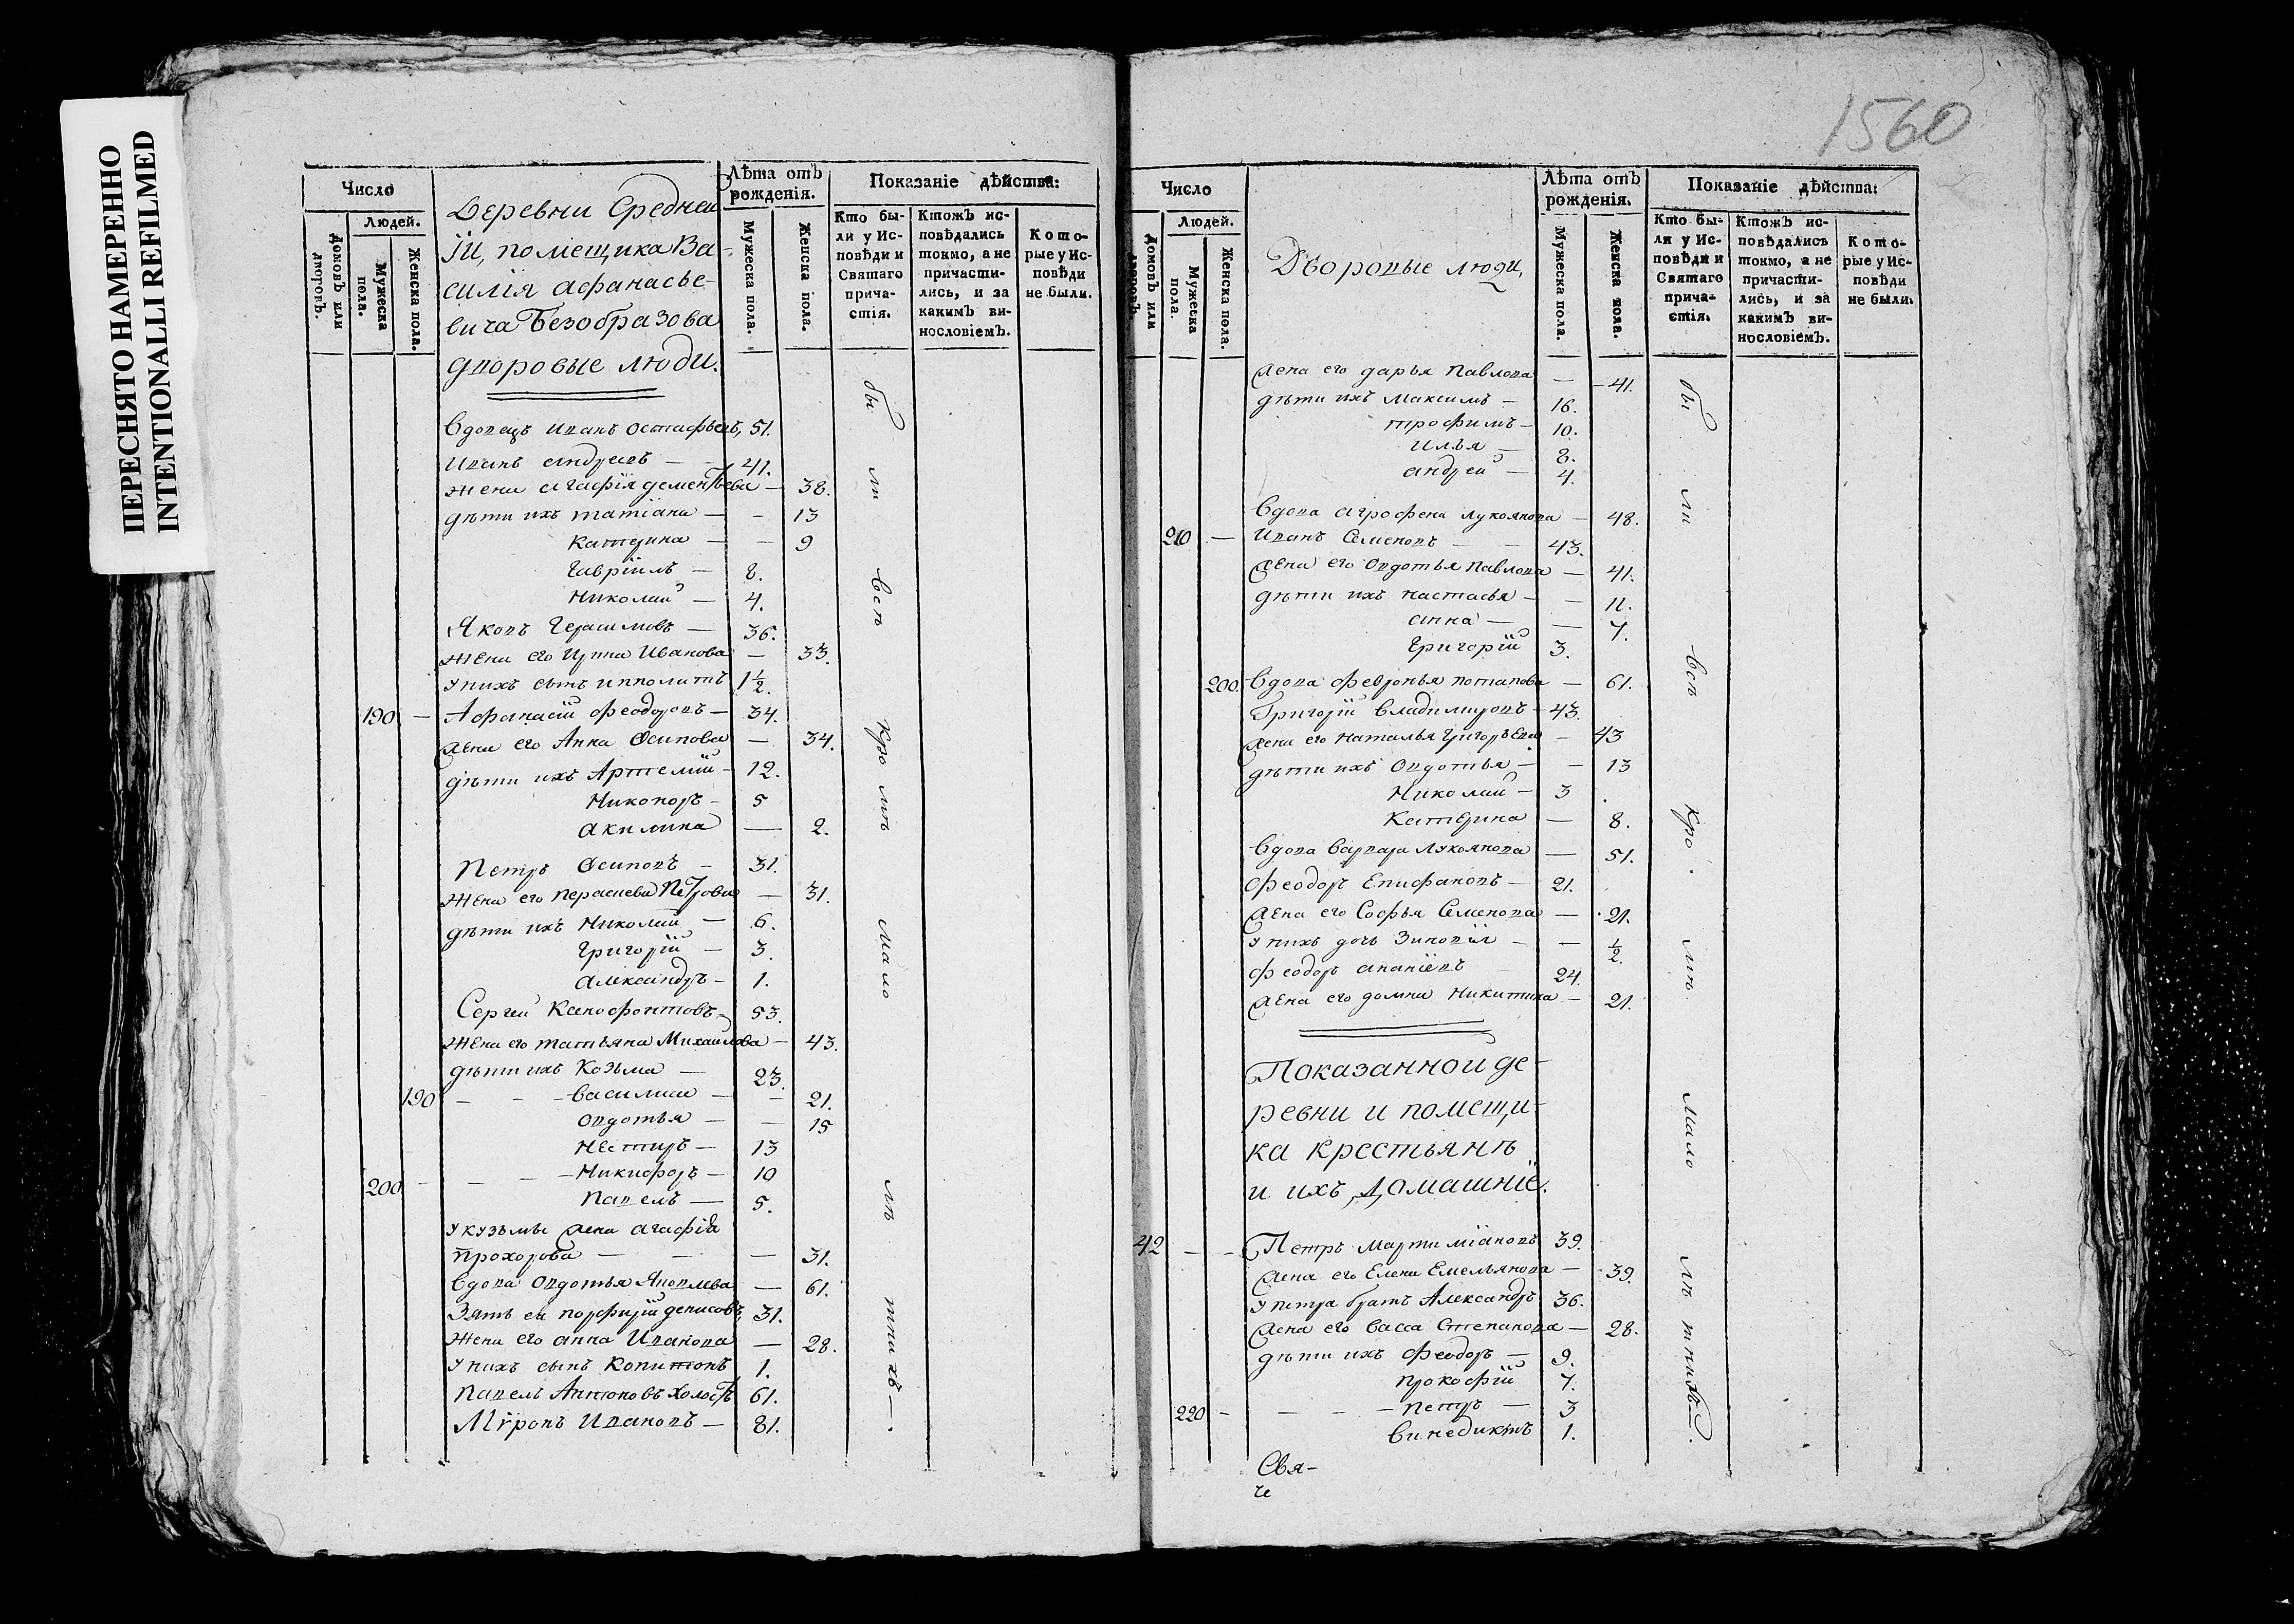 ПЕРЕСНЯТО НАМЕРЕННО
INTENTIONALLI REFILMED
1560
Число
Людей.
Домовъ или дворовъ.
Мужеска пола.
Женска пола.
Деревни Средней
їи, помещика Ва-
силія афанасье-
вича Безобразова
дворовые люди.
Лѣта отъ рожденія.
Мужеска пола.
Женска пола.
Показаніе дѣйства:
Кто были у Исповѣди и Святаго причастія.
Ктожъ исповѣдались токмо, а не причастились, и за какимъ винословіемъ.
Которые у Исповѣди не были.
Вдовецъ Иванъ Остафьевъ, 51.
Иванъ андреевъ — 41.
жена агафія дементьева — 38.
дѣти ихъ татіана — 13
катерина — 9
Гавріилъ — 8.
Николай — 4.
Яковъ Герасимовъ — 36.
жена его Ирина Иванова — 33.
у нихъ сынъ ипполитъ 1½.
190 — Афанасій феодоровъ — 34.
жена его Анна Осипова — 34.
дѣти ихъ Артемій — 12.
Никоноръ — 5
акилина — 2.
Петръ Осиповъ — 31.
жена его Петрова — 31.
дѣти ихъ Николай — 6.
григорій — 3.
александръ — 1.
Сергей Ксенофонтовъ 53.
жена его татьяна Михаилова — 43.
дѣти ихъ Козьма — 23.
190 — василиса — 21.
овдотья — 15
Нестиръ — 13
200 — Никифоръ — 10
павелъ — 5.
у кузьмы жена агафія
прохорова — 31.
вдова овдотья Яковлева — 61.
Зять ей порфирій денисовъ, 31.
жена его анна Иванова — 28.
у нихъ сынъ копитонъ 1.
павелъ Антоновъ холостъ 61.
Миронъ Ивановъ — 81.
бы ли всѣ кро мѣ мало лѣ тнихъ —.
Число
Людей.
Домовъ или дворовъ.
Мужеска пола.
Женска пола.
Дворовые люди,
Лѣта отъ рожденія.
Мужеска пола.
Женска пола.
Показаніе дѣйства:
Кто были у Исповѣди и Святаго причастія.
Ктожъ исповѣдались токмо, а не причастились, и за какимъ винословіемъ.
Которые у Исповѣди не были.
жена его дарья павлова — 41.
дѣти ихъ Максимъ — 16.
трофимъ — 10.
илья — 8.
андрей — 4.
вдова агрофена лукоянова — 48.
210 — Иванъ Семеновъ — 43.
жена его овдотья павлова — 41.
дѣти ихъ настасья — 11.
анна — 7.
григорій 3.
200. вдова февронья потапова — 61.
Григорій владимировъ — 43.
жена его наталья григорьева — 43
дѣти ихъ овдотья — 13
Николай — 3
катерина — 8.
вдова варвара лукоянова — 51.
феодоръ Епифановъ — 21.
жена его Софья Семенова — 21.
у нихъ дочь Зиновїя — ½.
феодоръ ананіевъ 24.
жена его домна никитина — 21.
Показанной де-
ревни и помещи-
ка крестьянѣ
и ихъ домашніе.
42 — Петръ мартиміановъ 39.
жена его Елена Емельянова — 39.
у петра братъ Александръ 36.
жена его васса степанова — 28.
дѣти ихъ феодоръ — 9.
прокофій 7.
220 — петръ — 3
винедиктъ 1.
бы ли всѣ кро. мѣ. мало лѣ тнихъ.
Свя-